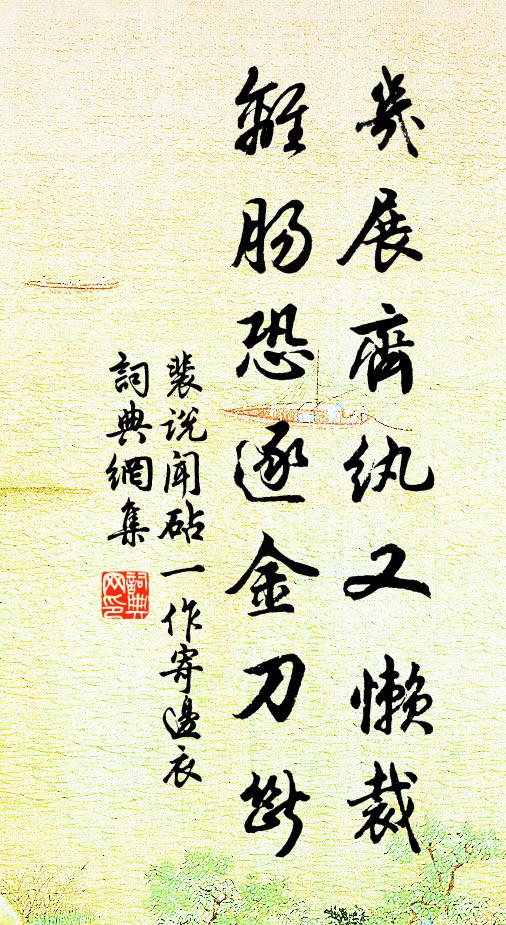 幾展齊紈又懶裁
離腸恐逐金刀斷
裴說聞砧一作寄邊衣
詞典網集
詞典网印